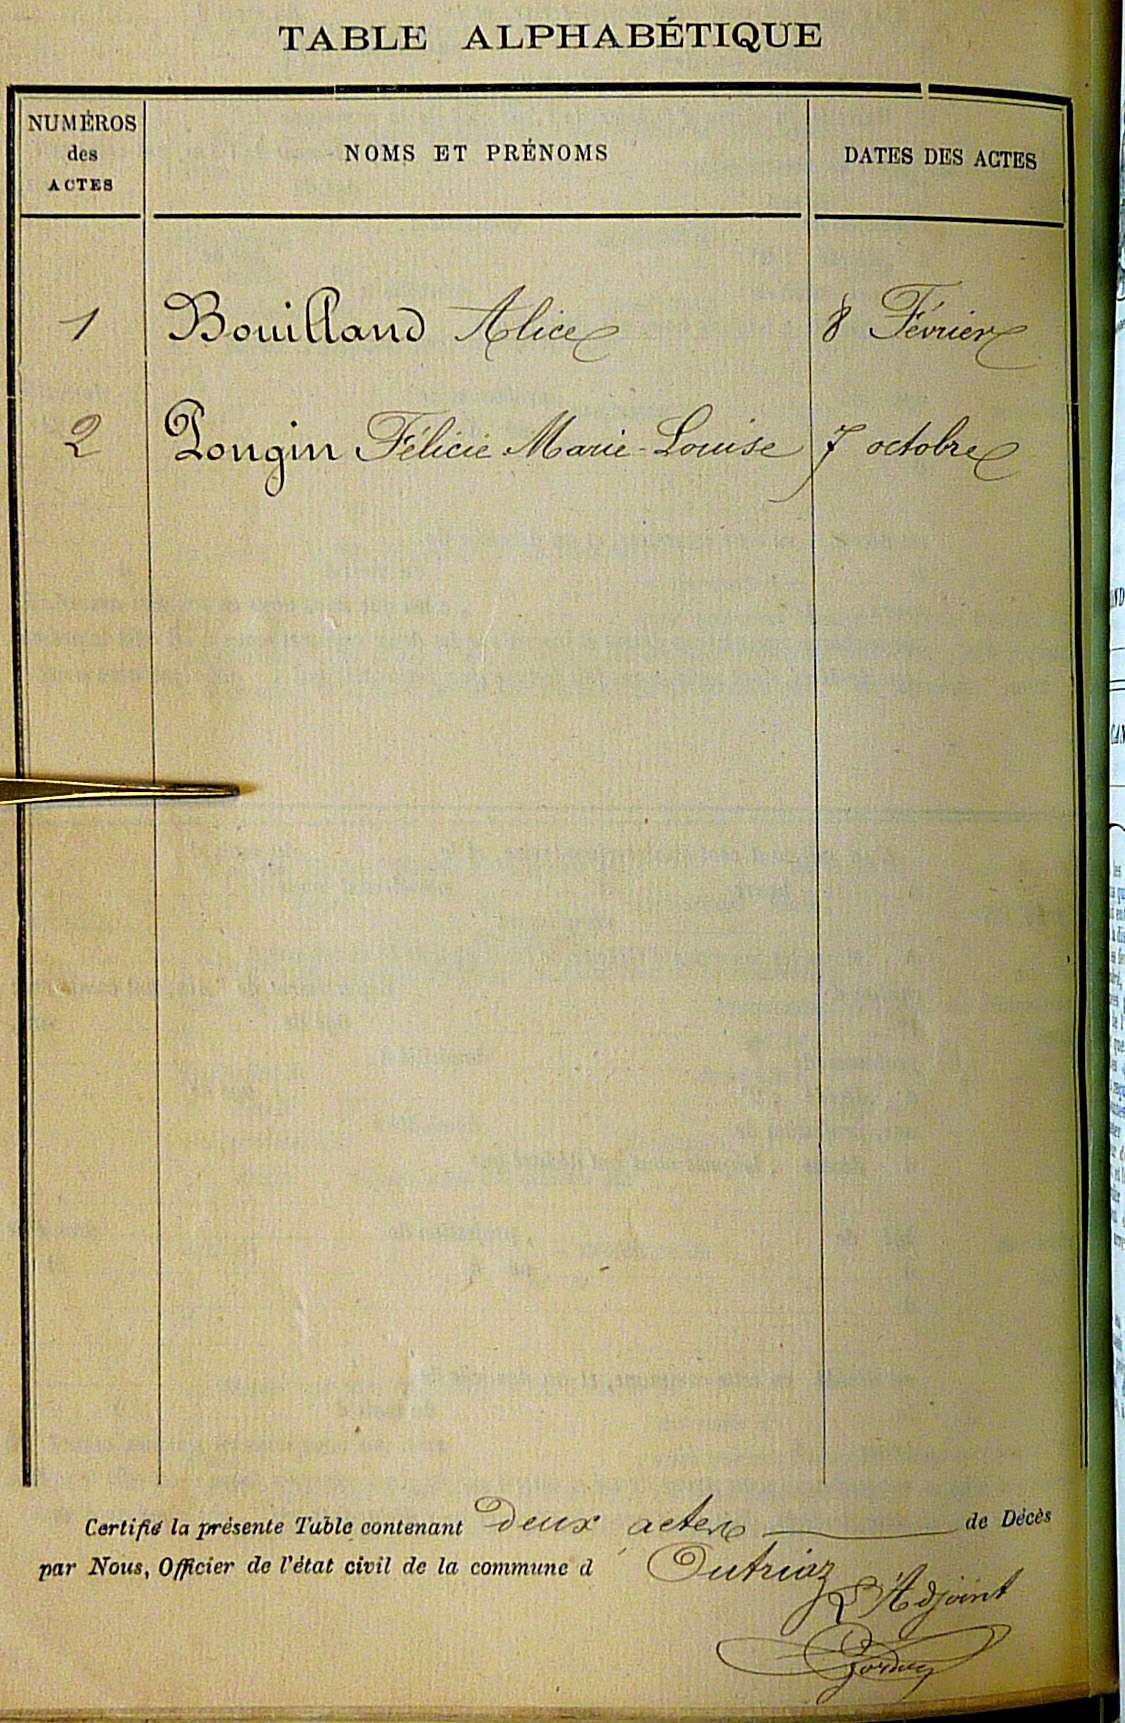 TABLE ALPHABÉTIQUE
NUMÉROS des ACTES
NOMS ET PRÉNOMS
DATES DES ACTES
1 Bouilland Alice 8 Février
2 Pongin Félicie Marie-Louise 7 octobre
Certifié la présente Table contenant deux actes de Décès
par Nous, Officier de l'état civil de la commune d' Outriaz
L'Adjoint